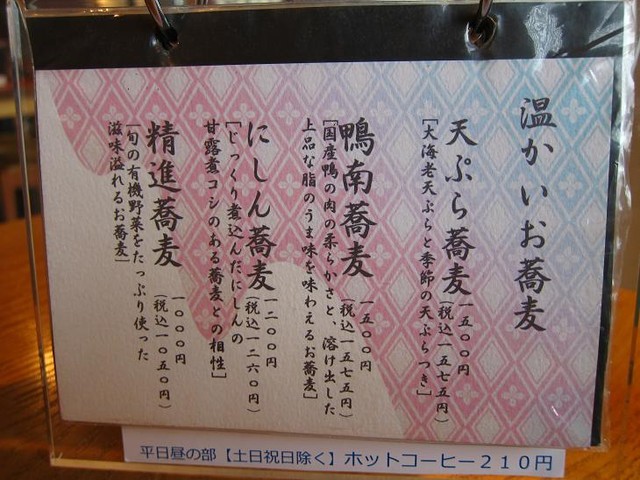 温かいお蕎麦
天ぷら蕎麦
一五〇〇円
(税込一五七五円)
[大海老天ぷらと季節の天ぷらつき]
鴨南蕎麦
一五〇〇円
(税込一五七五円)
[国産鴨の肉の柔らかさと、溶け出した
上品な脂のうま味を味わえるお蕎麦]
にしん蕎麦
一二〇〇円
(税込一二六〇円)
[じっくり煮込んだにしんの
甘露煮コシのある蕎麦との相性]
精進蕎麦
一〇〇〇円
(税込一〇五〇円)
[旬の有機野菜をたっぷり使った
滋味溢れるお蕎麦]
平日昼の部【土日祝日除く】ホットコーヒー210円